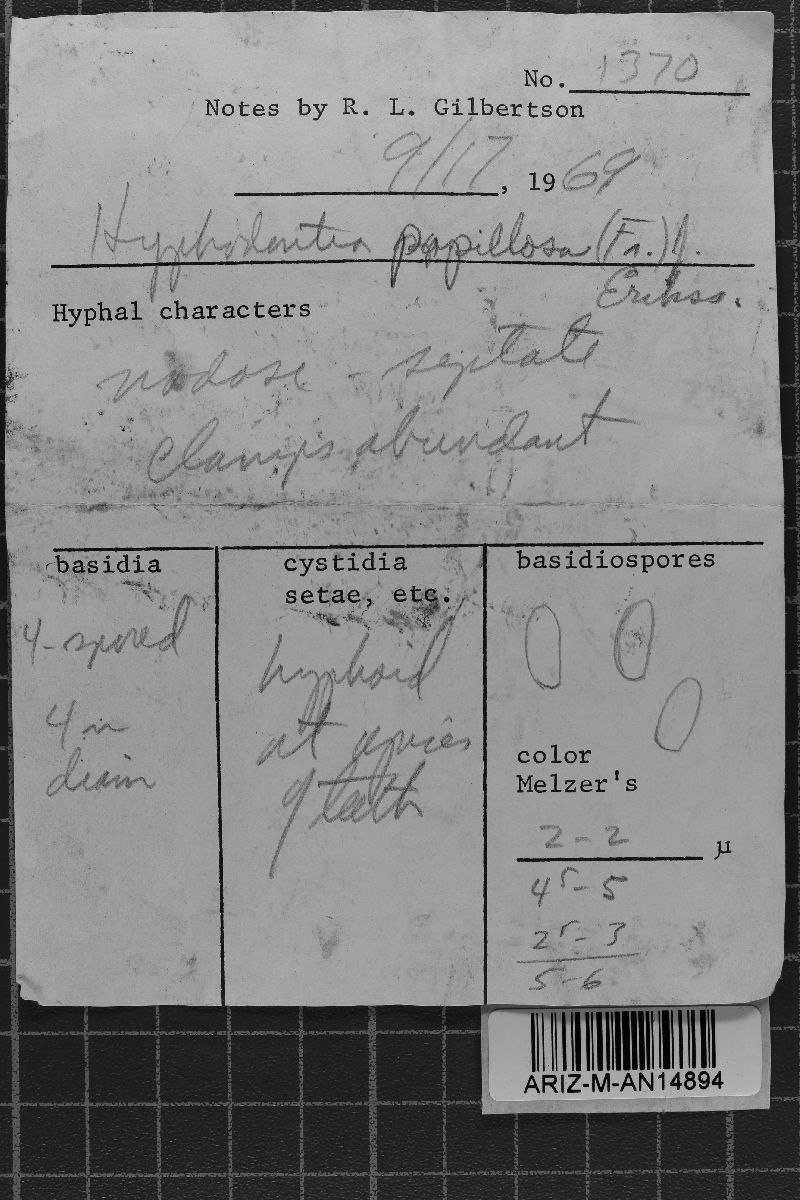 No. 1370
Notes by R. L. Gilbertson
9/17, 1969
Hyphodontia papillosa (Fr.) J.
Erikss.
Hyphal characters
nodose - septate
clamps abundant
basidia
4-spored
4 µ
diam
cystidia
setae, etc.
hyphoid
at apices
of teeth
basidiospores
color
Melzer's
2 - 2 µ
4⁵ - 5
2⁵ - 3
5 - 6
ARIZ-M-AN14894